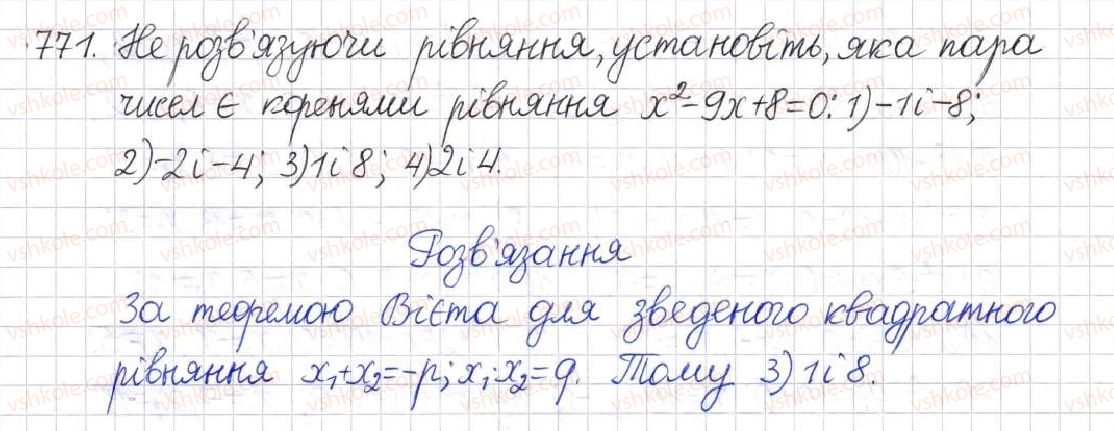 771. Не розв'язуючи рівняння, установіть, яка пара
чисел є коренями рівняння x²-9x+8=0: 1)-1 і -8;
2)-2 і -4; 3)1 і 8; 4)2 і 4.
Розв'язання
За теоремою Вієта для зведеного квадратного
рівняння x₁+x₂=-p; x₁·x₂=q. Тому 3) 1 і 8.